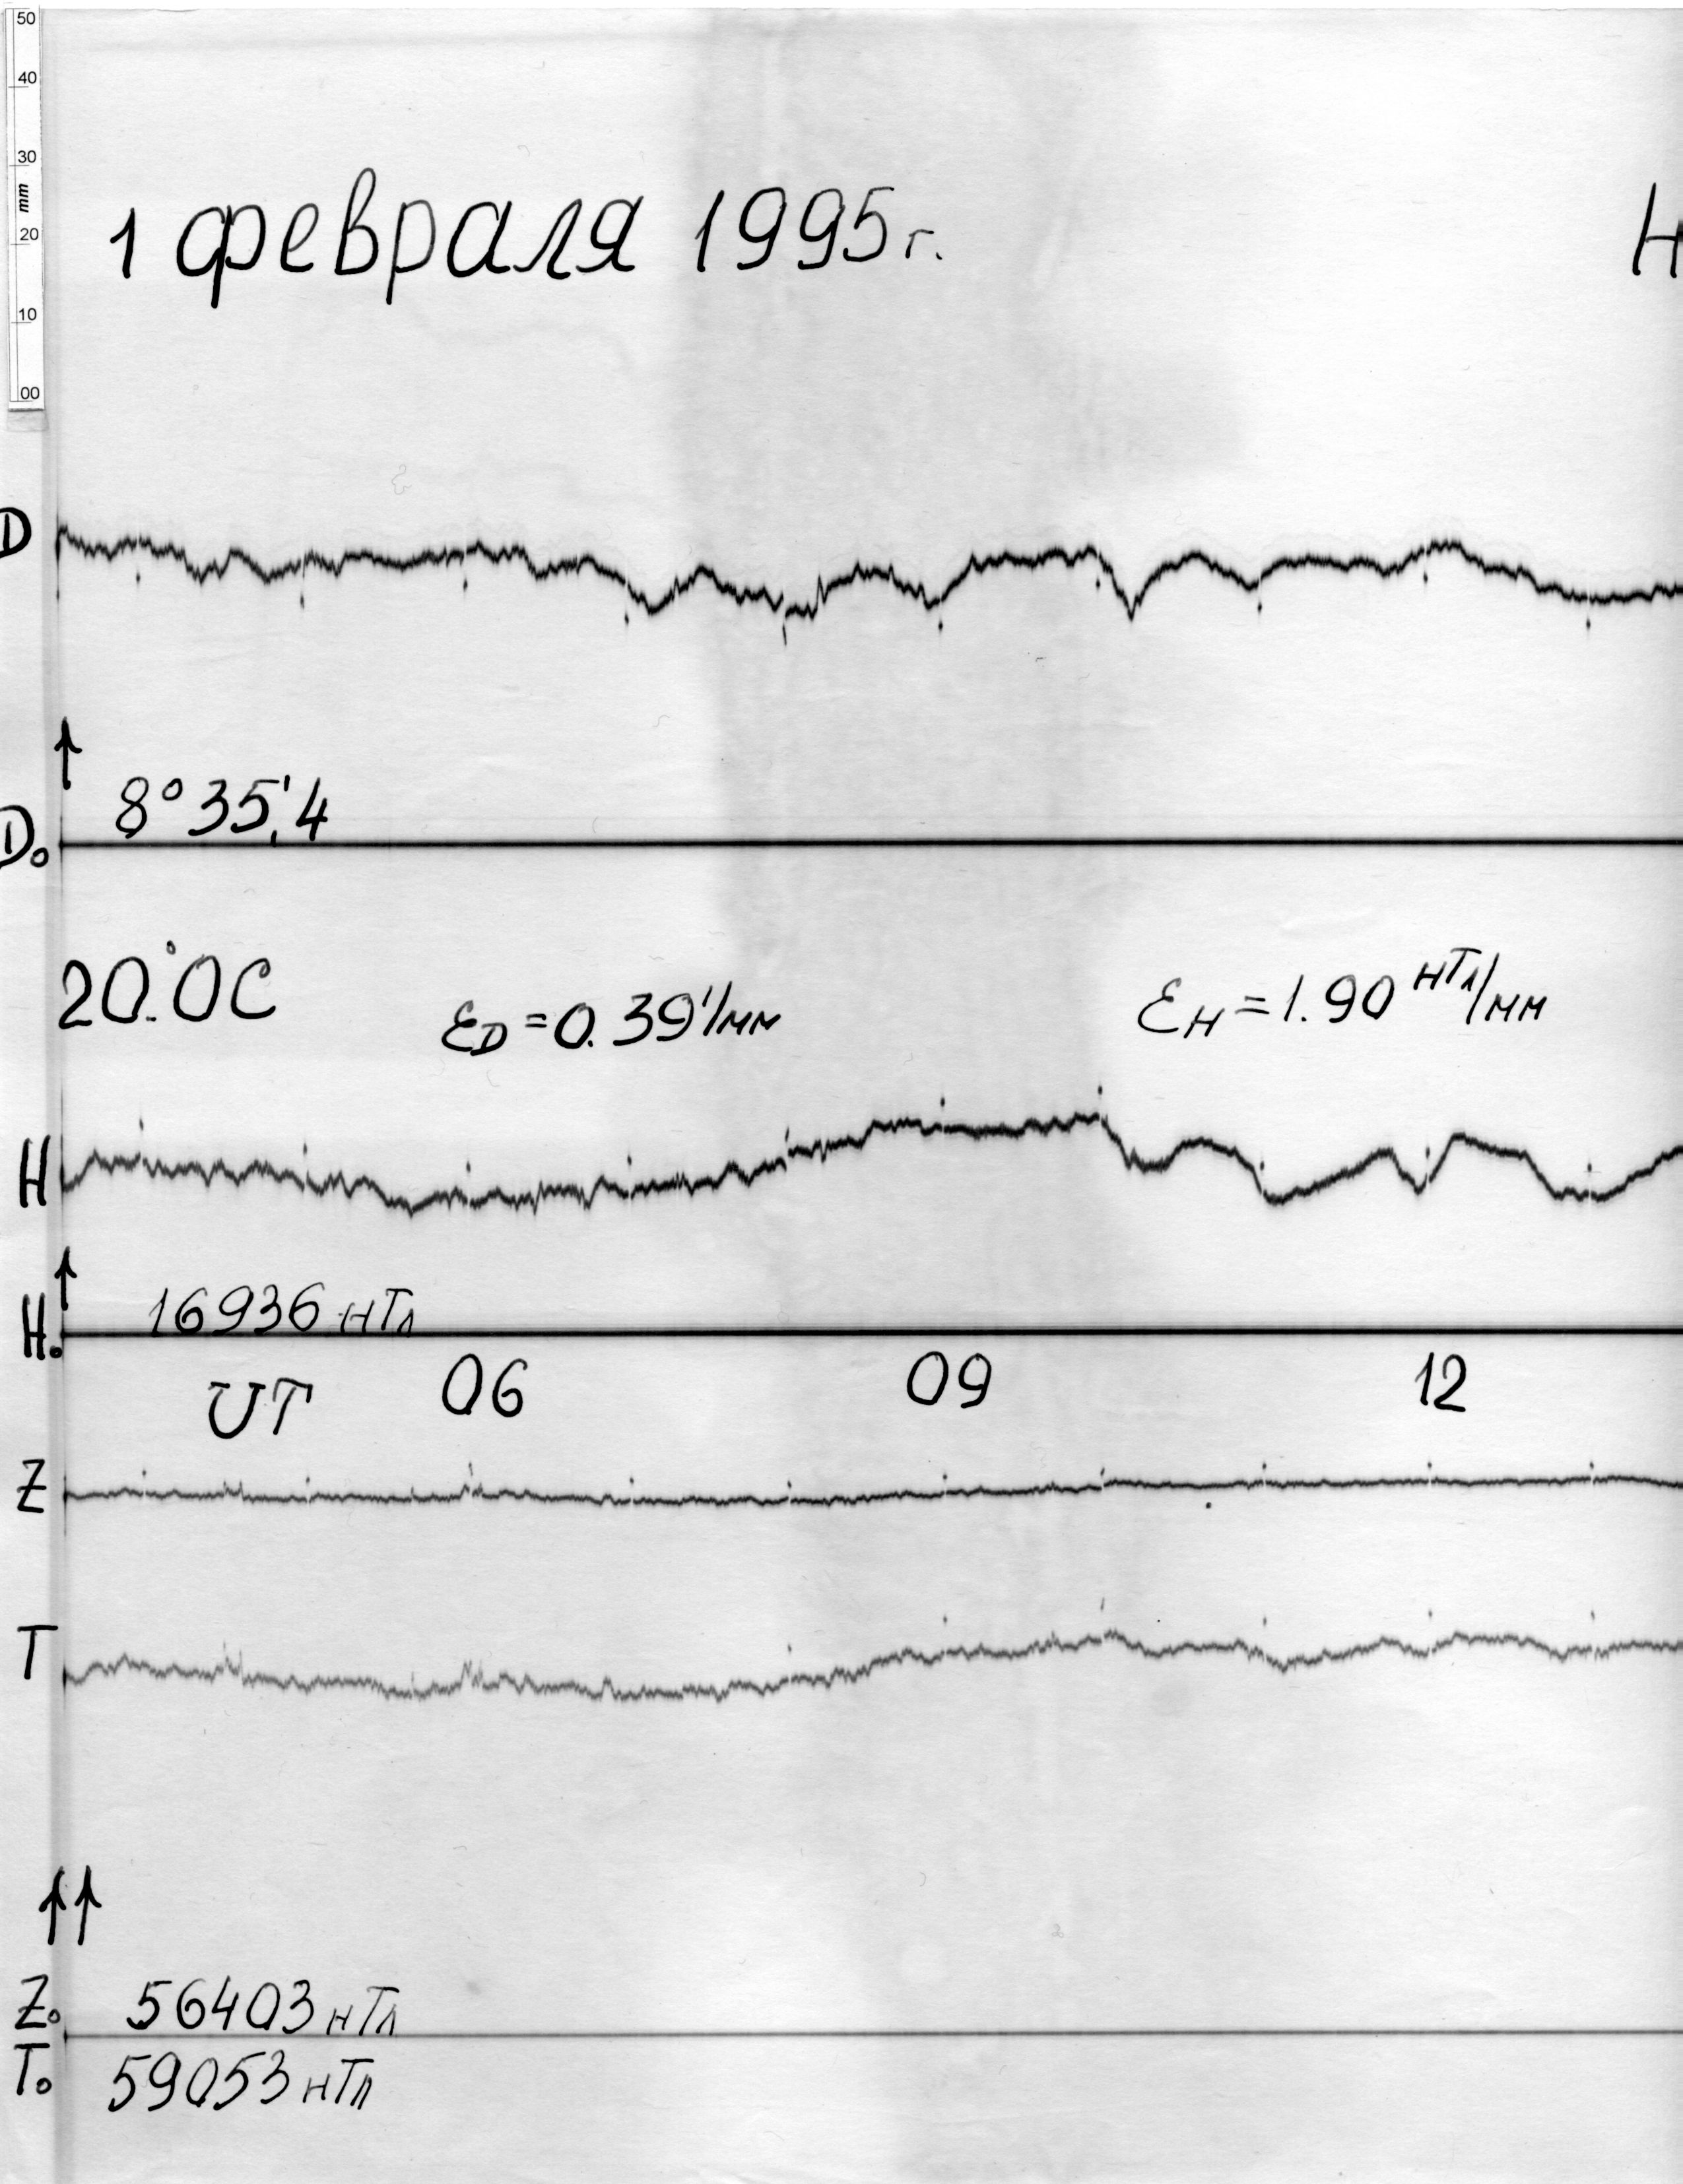 50
40
30
mm
20
10
00
1 февраля 1995 г.
Н
D
8°35,'4
D₀
20.°0С
ε_D = 0.39'/мм
ε_H = 1.90 нТл/мм
H
16936 нТл
H₀
UT 06 09 12
Z
T
Z₀ 56403 нТл
T₀ 59053 нТл